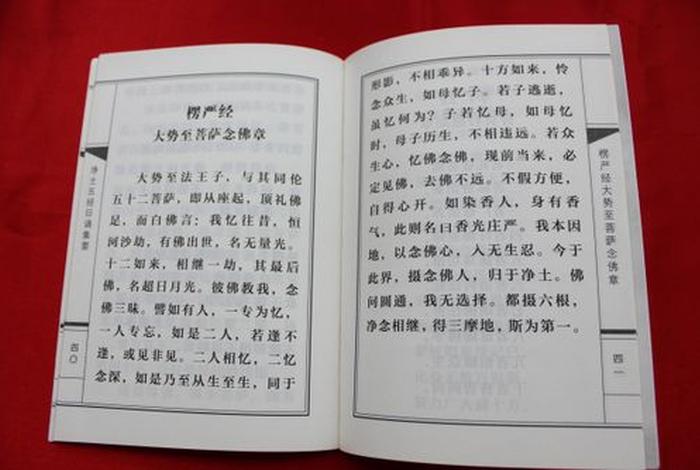 楞严经
大势至菩萨念佛章
大势至法王子，与其同伦
五十二菩萨，即从座起，顶礼佛
足，而白佛言：我忆往昔，恒
河沙劫，有佛出世，名无量光。
十二如来，相继一劫，其最后
佛，名超日月光。彼佛教我，念
佛三昧。譬如有人，一专为忆，
一人专忘，如是二人，若逢不
逢，或见非见。二人相忆，二忆
念深，如是乃至从生至生，同于
净土五经日诵集要
四〇
形影，不相乖异。十方如来，怜
念众生，如母忆子。若子逃逝，
虽忆何为？子若忆母，如母忆
时，母子历生，不相违远。若众
生心，忆佛念佛，现前当来，必
定见佛，去佛不远。不假方便，
自得心开。如染香人，身有香
气，此则名曰香光庄严。我本因
地，以念佛心，入无生忍。今于
此界，摄念佛人，归于净土。佛
问圆通，我无选择。都摄六根，
净念相继，得三摩地，斯为第一。
楞严经大势至菩萨念佛章
四一